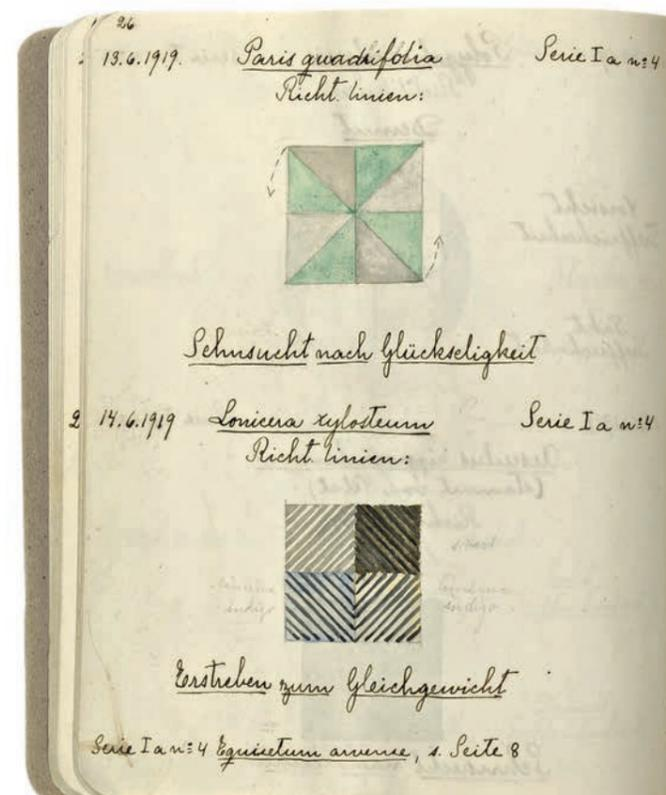 26
13.6.1919. Paris quadrifolia Serie I a nº 4
Richt. linien:
Sehnsucht nach Glückseligkeit
2 14.6.1919 Lonicera xylosteum Serie I a nº 4
Richt. linien:
Erstreben zum Gleichgewicht
Serie I a nº 4 Equisetum arvense, s. Seite 8